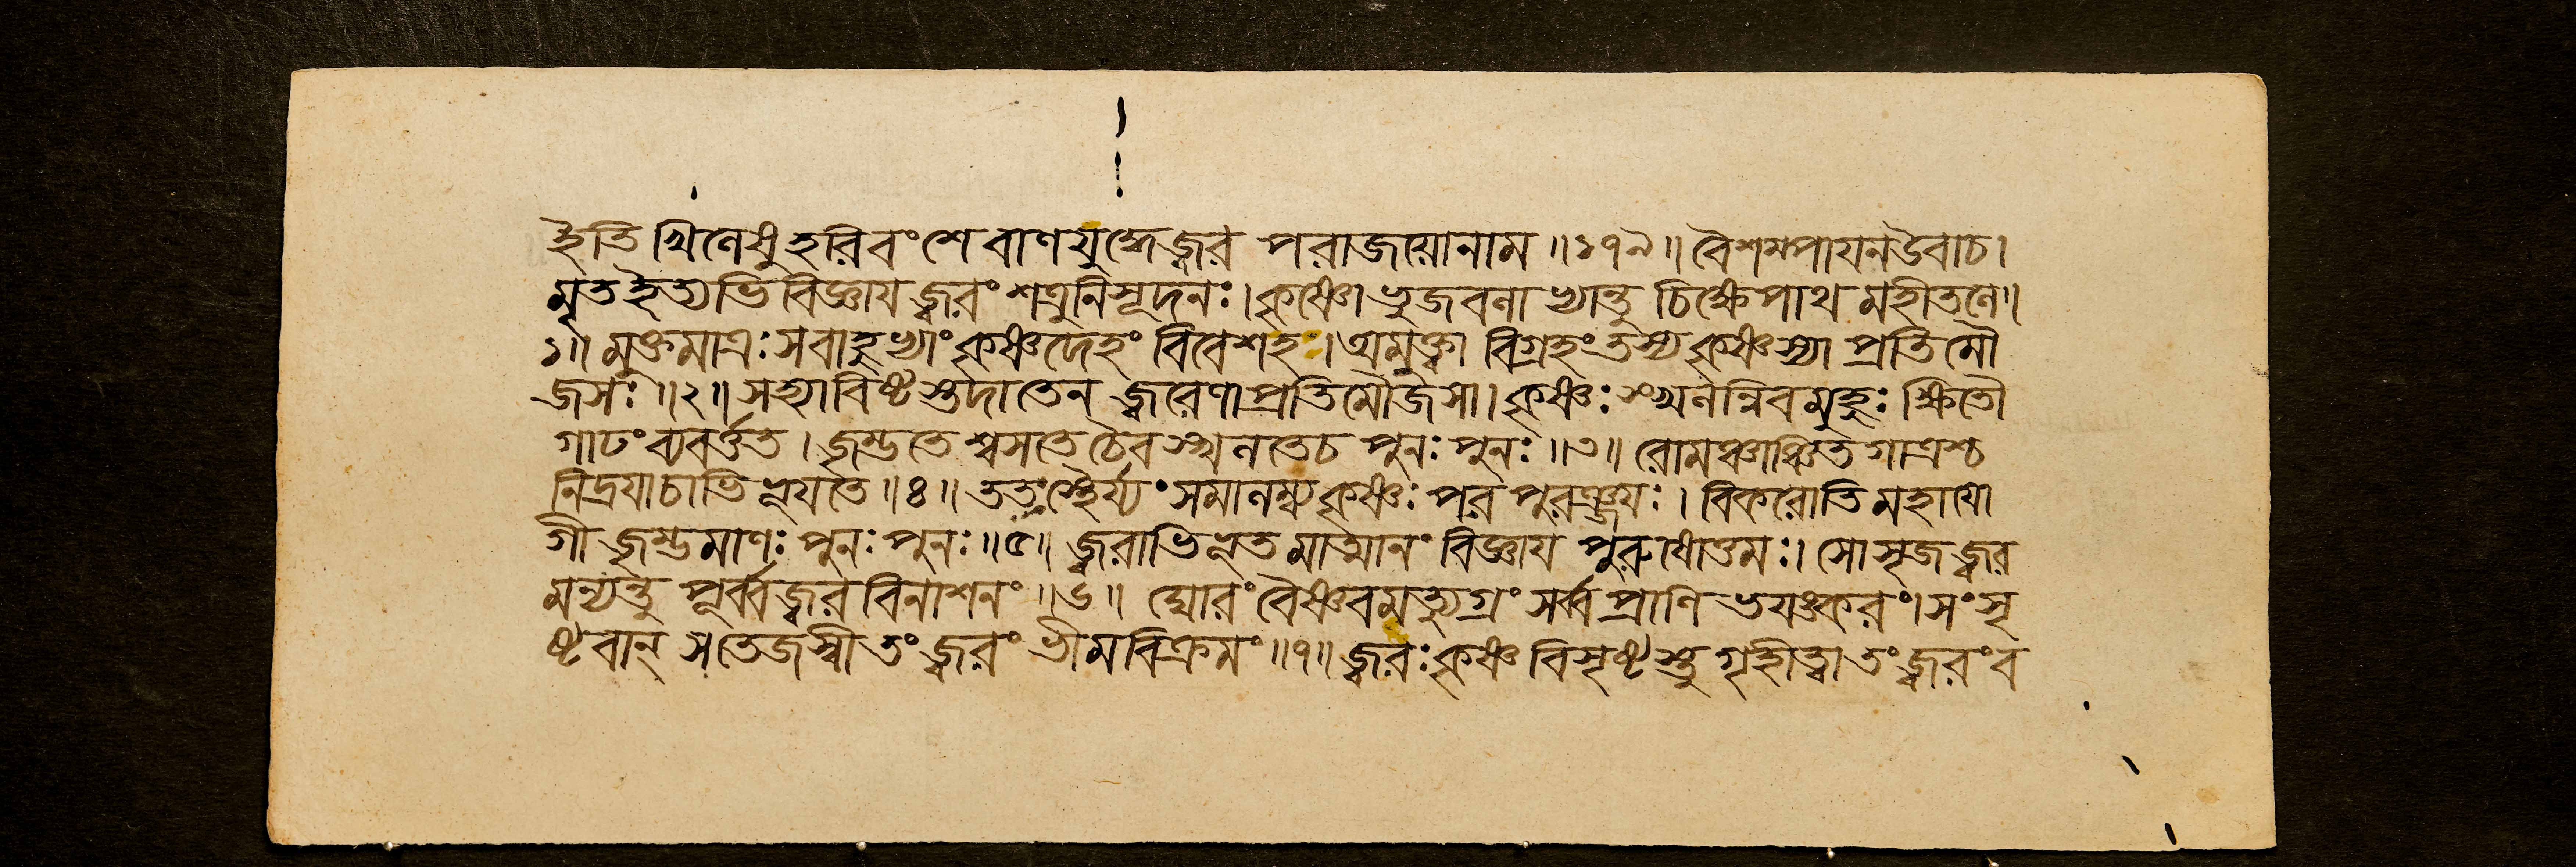 ইতি খিলেষু হরিবংশে বাণযুদ্ধে জ্বর পরাজয়োনাম ॥১৭৯॥ বৈশমপায়ন উবাচ।
মৃত ইত্যভি বিজ্ঞায় জ্বরং শত্রুনিসূদনঃ। কৃষ্ণো ভুজবলা ভ্যান্তু চিক্ষেপাথ মহীতলে॥
১॥ মুক্তমাত্রঃ সবাহুভ্যাং কৃষ্ণদেহং বিবেশহঃ। অমুক্ত্বা বিগ্রহং তস্য কৃষ্ণস্যা প্রতিমৌ
জসঃ ॥২॥ সহ্যাবিষ্টস্তদাতেন জ্বরেণাপ্রতিমৌজসা। কৃষ্ণঃ স্খলন্নিব মুহুঃ ক্ষিতৌ
গাঢং ব্যবর্ত্তত। জৃম্ভতে শ্বসতে চৈব স্খলতেচ পুনঃ পুনঃ ॥৩॥ রোমঞ্চাঞ্চিত গাত্রশ্চ
নিদ্রয়াচাভি ভূয়তে ॥৪॥ ততস্থৈর্য্যং সমালম্ব্য কৃষ্ণঃ পর পুরঞ্জয়ঃ। বিকরোতি মহাযো
গী জৃম্ভমাণঃ পুনঃ পুনঃ ॥৫॥ জ্বরাভিভূত মাত্মানং বিজ্ঞায় পুরুষোত্তমঃ। সোসৃজজ্জ্বর
মন্যন্তু পূর্ব্বজ্বর বিনাশনং ॥৬॥ ঘোরং বৈষ্ণবমত্যুগ্রং সর্ব্বপ্রাণি ভয়ঙ্করং। সংসৃ
ষ্টবান্ সতেজস্বী তং জ্বরং ভীমবিক্রমং ॥৭॥ জ্বরঃ কৃষ্ণ বিসৃষ্টস্তু গৃহীত্বা তং জ্বরং ব